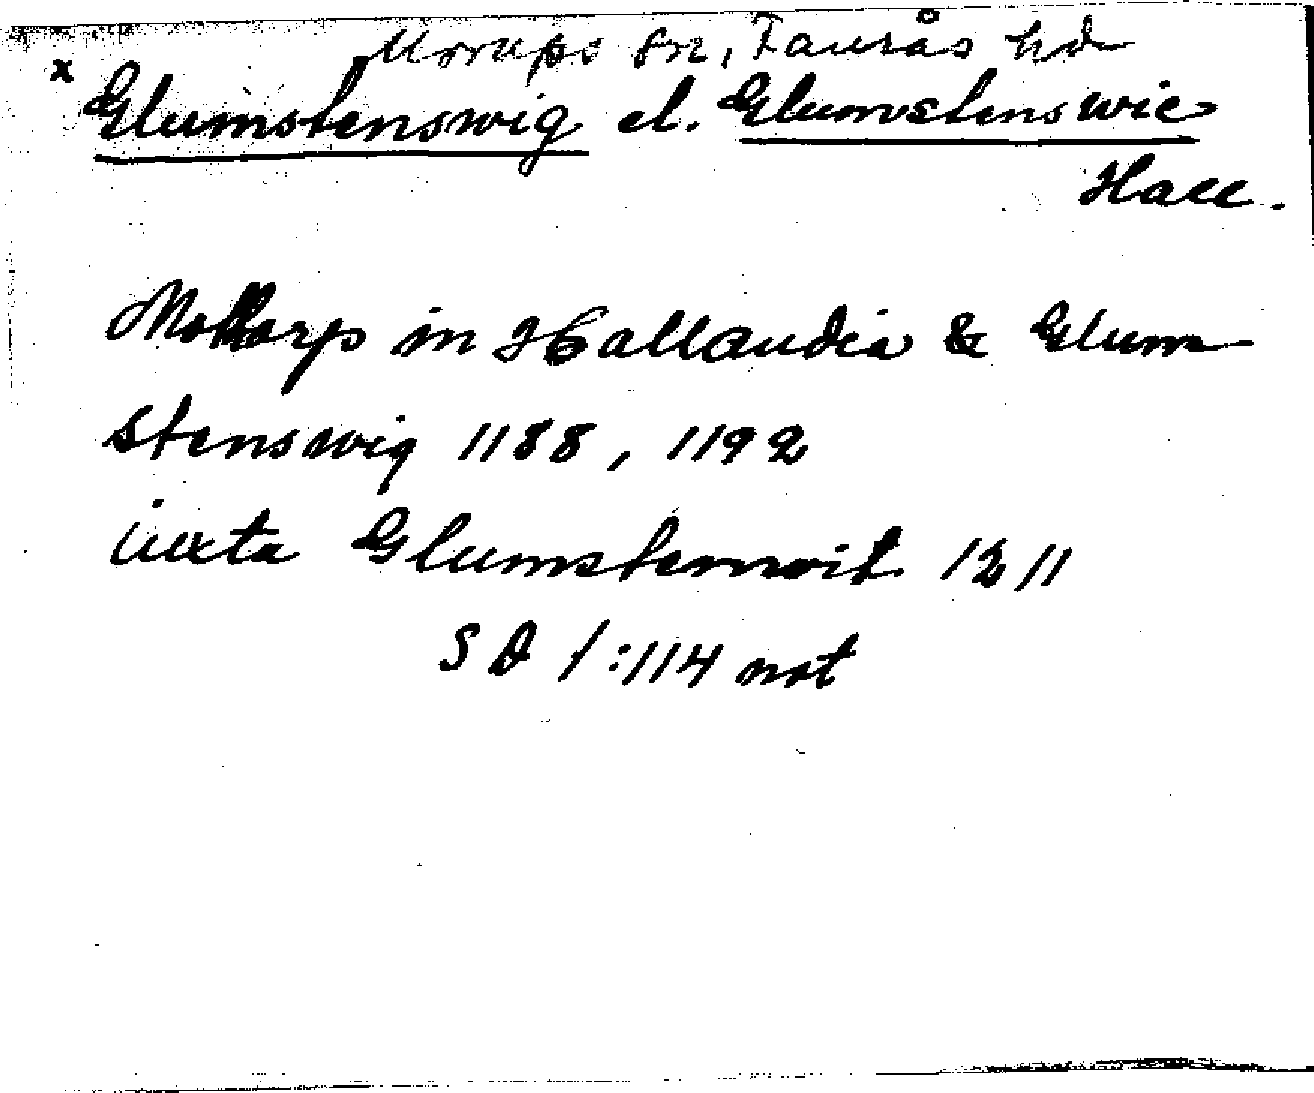 Morups sn, Faurås hd
x Glumstenswig el. Glumstenswic
Hall.
Mottorp in Hallandia & Glum
stenswig 1188, 1192
iuxta Glumstenwit 1211
SD 1:114 not